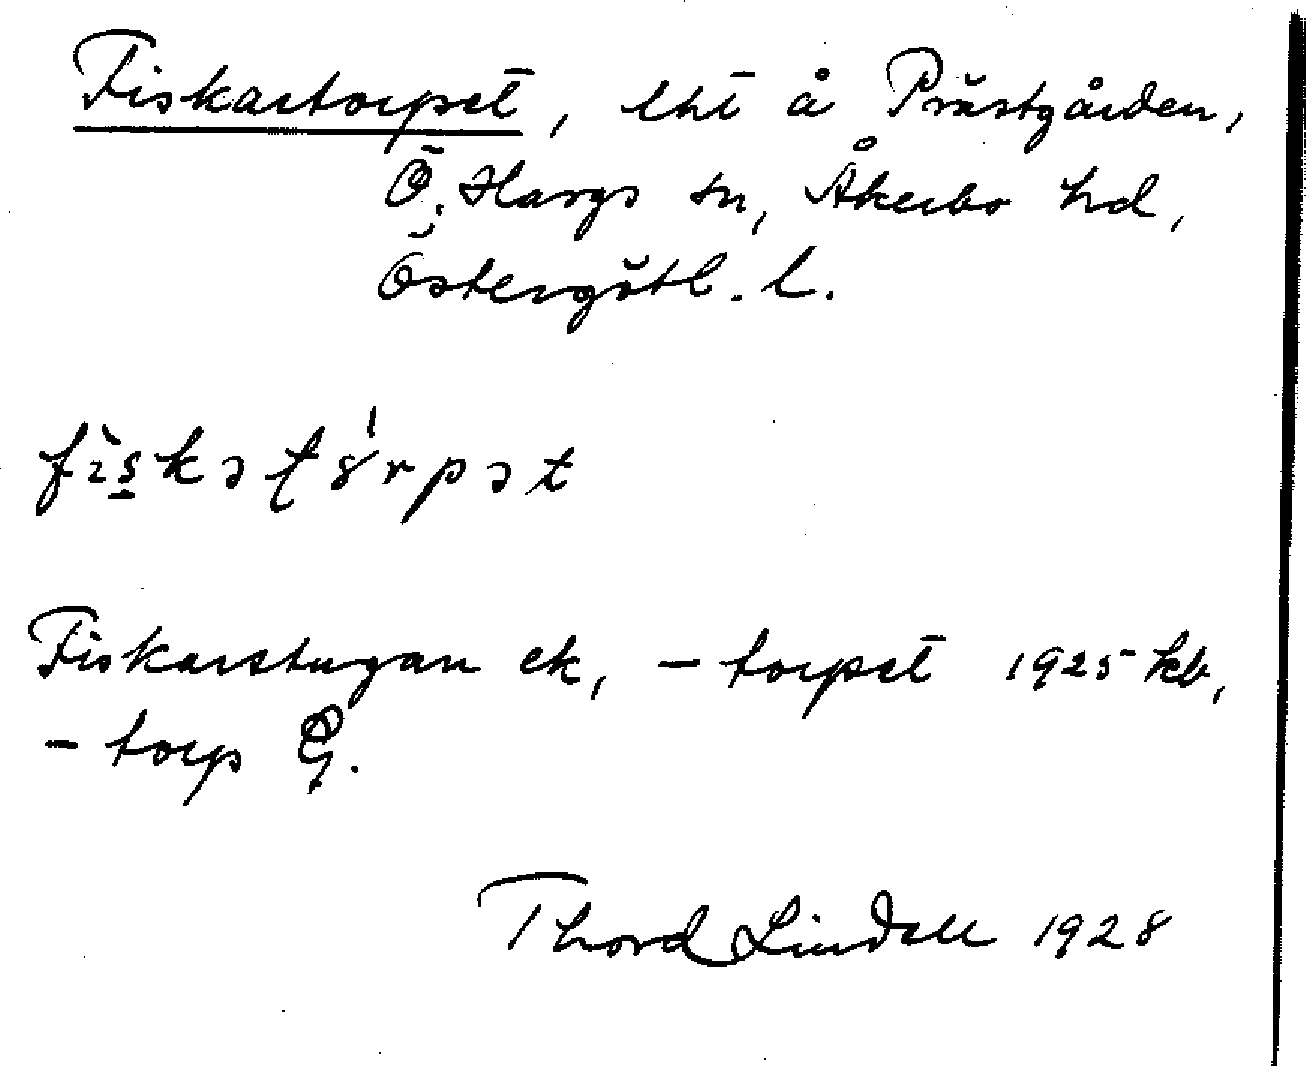 Fiskartorpet, lht å Prästgården,
Ö. Hargs sn, Åkerbo hd,
Östergötl. l.
Fiskarstugan ek, - torpet 1925 kb,
- torp G.
Thord Lindell 1928